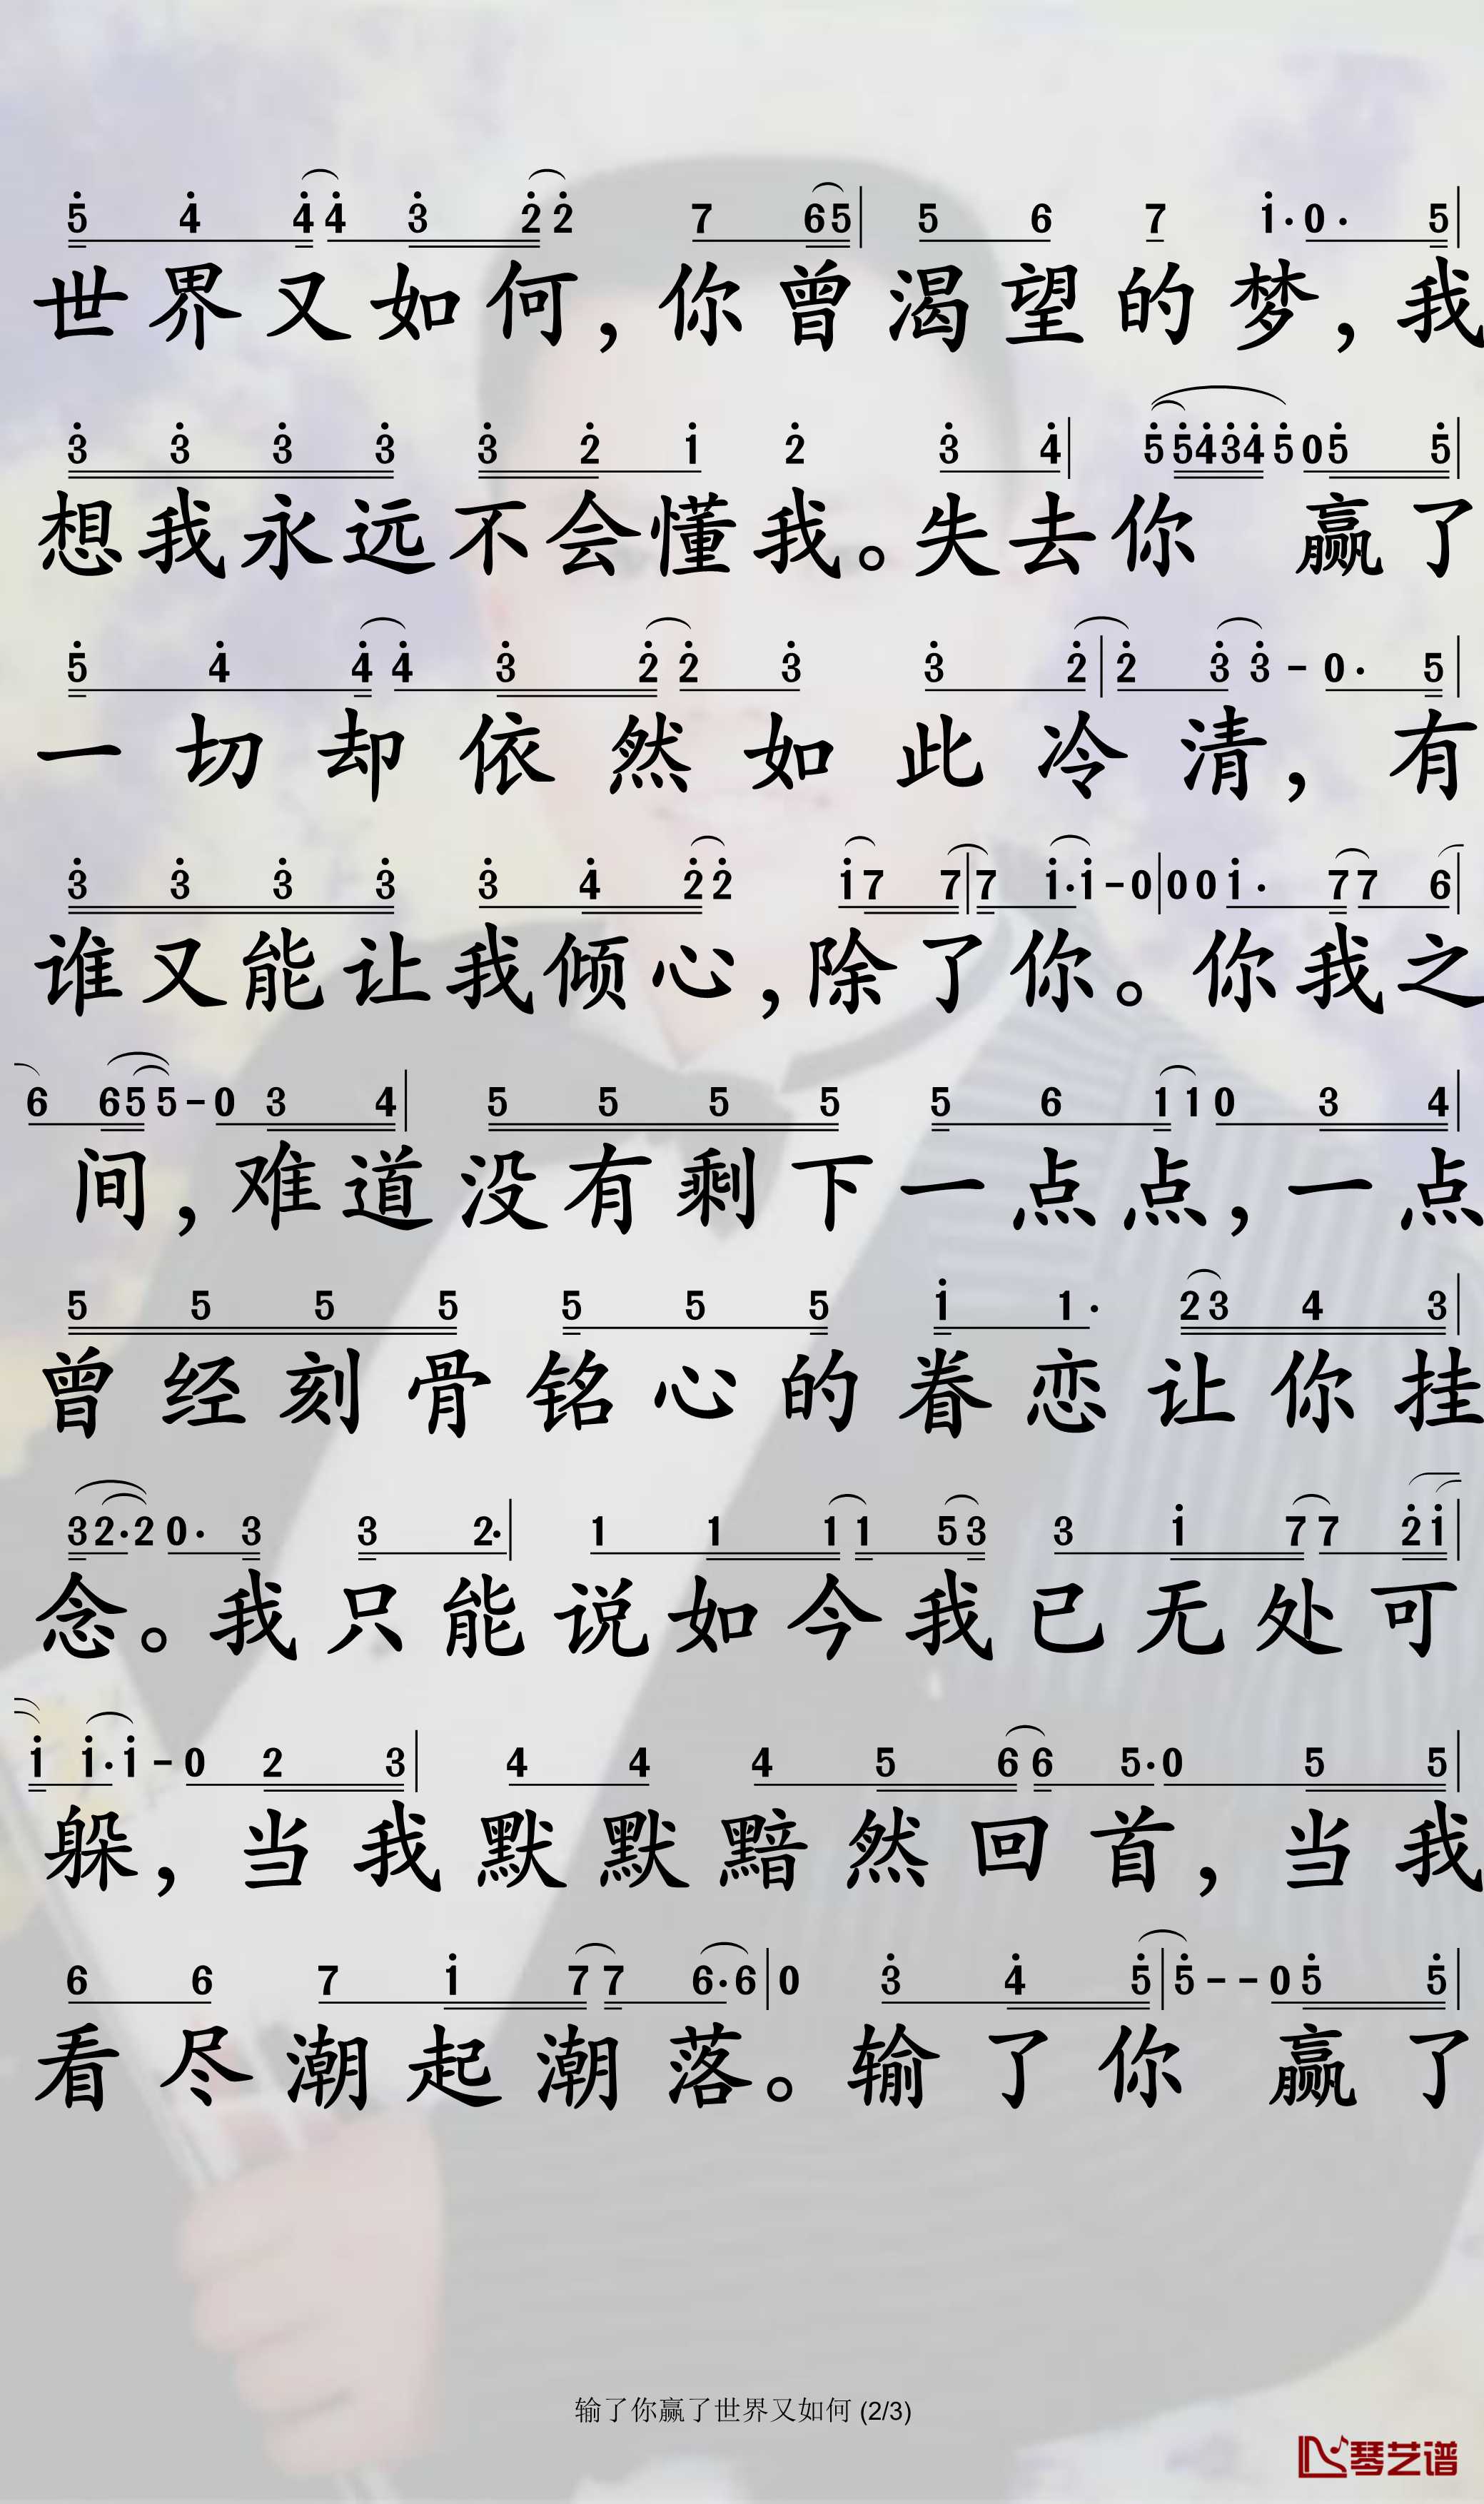 5 4 4 4 3 2 2 7 6 5 | 5 6 7 1· 0· 5 |
世界又如何，你曾渴望的梦，我
3 3 3 3 3 2 1 2 3 4 | 5 5 4 3 4 5 0 5 5 |
想我永远不会懂我。失去你 赢了
5 4 4 4 3 2 2 3 3 2 | 2 3 3 - 0· 5 |
一切却依然如此冷清，有
3 3 3 3 3 4 2 2 1 7 7 | 7 1· 1 - 0 | 0 0 1· 7 7 6 |
谁又能让我倾心，除了你。你我之
6 6 5 5 - 0 3 4 | 5 5 5 5 5 6 1 1 0 3 4 |
间，难道没有剩下一点点，一点
5 5 5 5 5 5 5 1 1· 2 3 4 3 |
曾经刻骨铭心的眷恋让你挂
3 2· 2 0· 3 3 2· | 1 1 1 1 5 3 3 1 7 7 2 1 |
念。我只能说如今我已无处可
1 1· 1 - 0 2 3 | 4 4 4 5 6 6 5· 0 5 5 |
躲，当我默默黯然回首，当我
6 6 7 1 7 7 6· 6 | 0 3 4 5 | 5 - - 0 5 5 |
看尽潮起潮落。输了你 赢了
输了你赢了世界又如何 (2/3)
琴艺谱